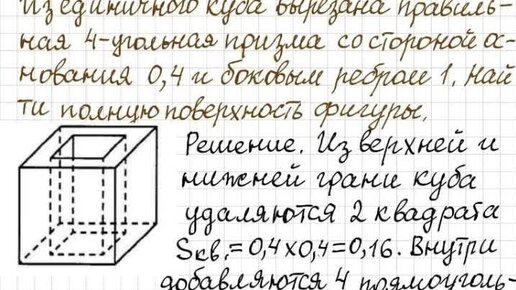 Из единичного куба вырезана правиль-
ная 4-угольная призма со стороной ос-
нования 0,4 и боковым ребром 1. Най
ти полную поверхность фигуры.
Решение. Из верхней и
нижней грани куба
удаляются 2 квадрата
Sкв.=0,4x0,4=0,16. Внутри
добавляются 4 прямоуголь-